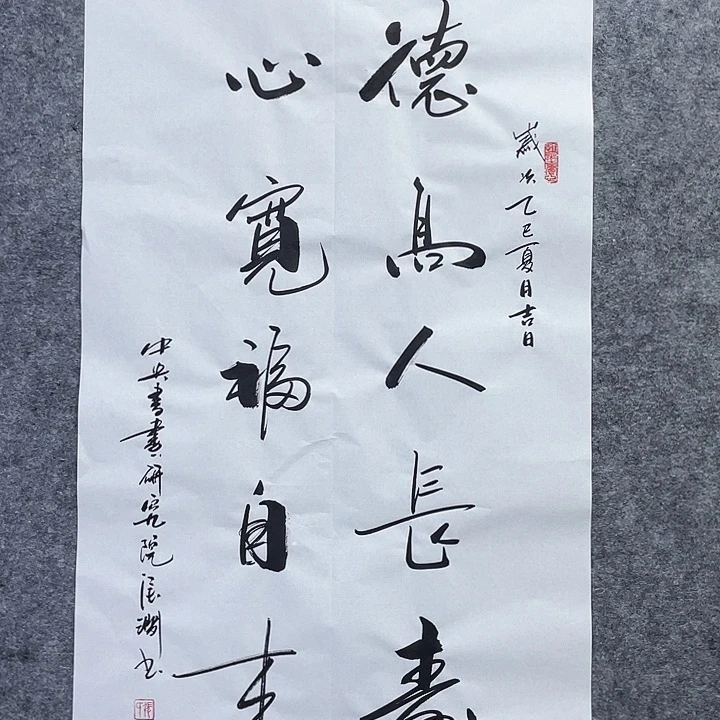 歲次乙巳夏月吉日
德高人長壽
心寬福自来
中央書畫研究院 淵书